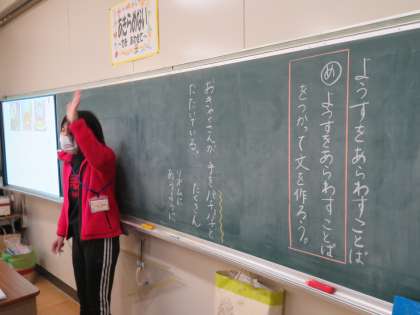 ようすをあらわすことば
め ようすをあらわすことば
をつかって文を作ろう。
おきゃくさんが 手をパチパチと
たたいている。
たくさん
リズムに
あうように
あきらめない